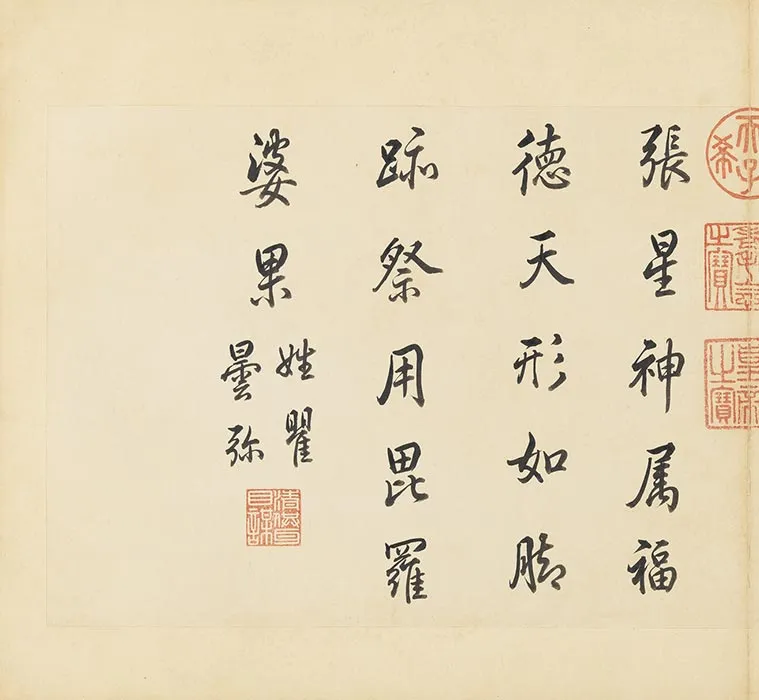 張星神属福
徳天形如脚
跡祭用毘羅
婆果
姓瞿
曇弥